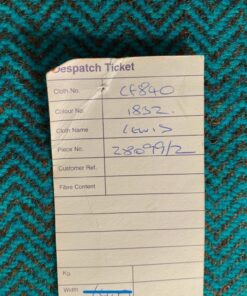 Despatch Ticket
Cloth No. CF840
Colour No. 1832.
Cloth Name LEWIS
Piece No. 28099/2
Customer Ref.
Fibre Content
Kg
Width